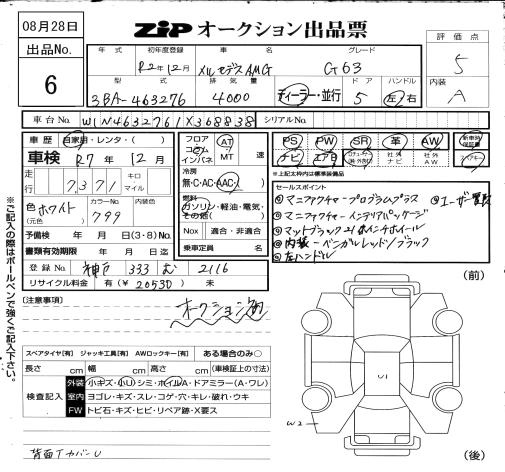 08月28日
ZIP オークション出品票
出品No. 6
年式 初年度登録 車名 グレード
R2年12月 メルセデスAMG G63
型式 排気量 ドア ハンドル
3BA-463276 4000 ディーラー・並行 5 左 右
評価点 5
内装 A
車台No. W1N4632761X368838 シリアルNo.
車歴 自家用・レンタ・( )
車検 R7年12月
走行 7,371 キロ マイル
色 ホワイト カラーNo. 799 内装色
(元色)
予備検 年 月 日(3・8)No.
書類有効期限 年 月 日迄
登録No. 神戸 333 む 2116
リサイクル料金 有(¥20530) 未
フロア コラム インパネ AT MT 速
冷房 無・C・AC・AAC
燃料 ガソリン・軽油・電気・その他( )
Nox 適合・非適合
乗車定員 名
PS PW SR 革 AW
ナビ エアB 社外ナビ 社外AW
※上記太枠内は標準装備品
セールスポイント
◎マニファクチャープログラムプラス ◎ユーザー買取
◎マニファクチャーメンテリアルパッケージ
◎マットブラック21インチホイール
◎内装-ベンガルレッド/ブラック
◎左ハンドル
※ご記入の際はボールペンで強くご記入下さい。
(注意事項)
スペアタイヤ[有] ジャッキ工具[有] AWロックキー[有] ある場合のみ○
長さ cm 幅 cm 高さ cm (車検証上の寸法)
検査記入
外装 小キズ・小U シミ・ホイルA・ドアミラー(A・ワレ)
室内 ヨゴレ・キズ・スレ・コゲ・穴・キレ・破れ・ウキ
FW トビ石・キズ・ヒビ・リペア跡・X要ス
背面TカバーU
(前)
U1
W2
(後)